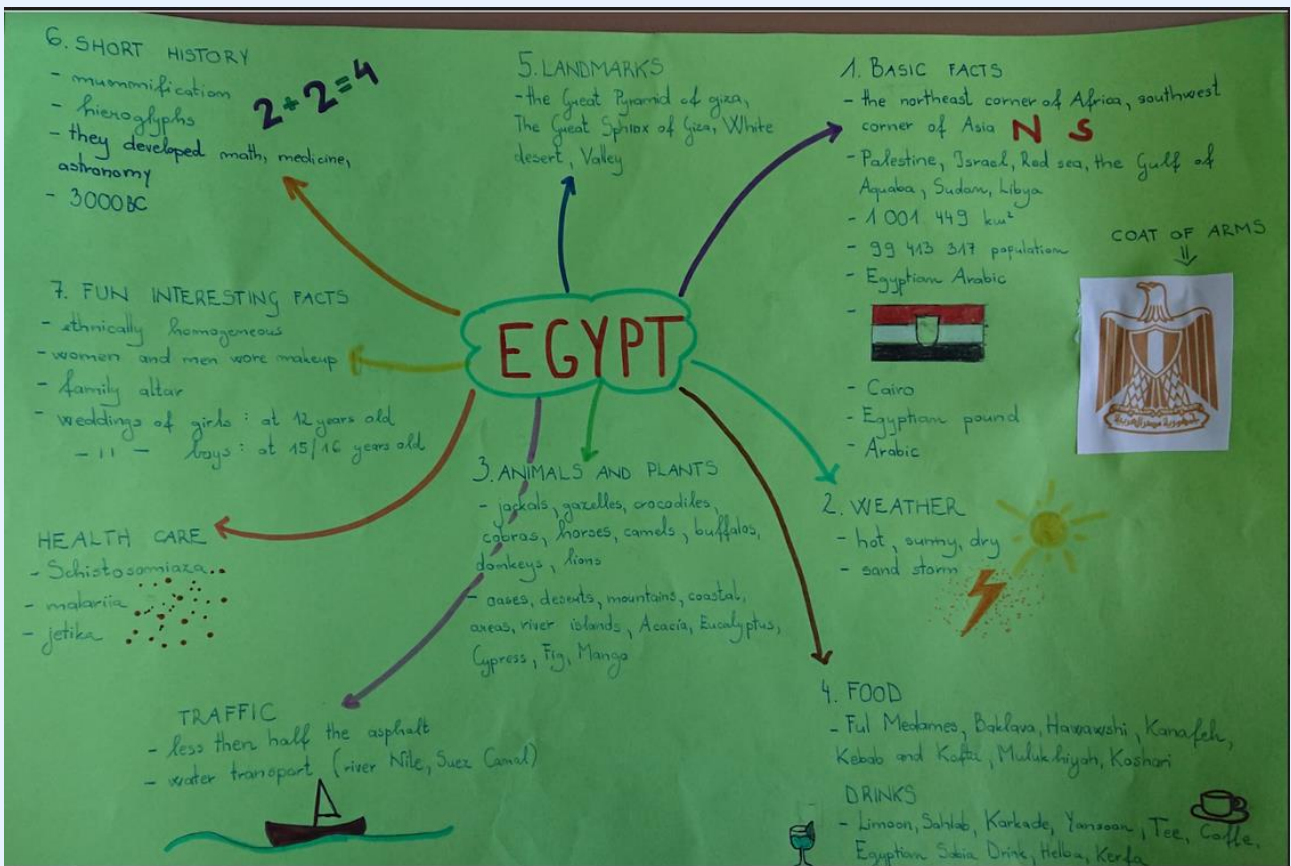 6. SHORT HISTORY
- mummification
- hieroglyphs
- they developed math, medicine,
astronomy
- 3000 BC
2+2=4
5. LANDMARKS
- the Great Pyramid of giza,
The Great Sphinx of Giza, White
desert, Valley
1. BASIC FACTS
- the northeast corner of Africa, southwest
corner of Asia N S
- Palestine, Israel, Red sea, the Gulf of
Aquaba, Sudan, Libya
- 1 001 449 km²
- 99 413 317 population
- Egyptian Arabic
-
- Cairo
- Egyptian pound
- Arabic
COAT OF ARMS
7. FUN INTERESTING FACTS
- ethnically homogeneous
- women and men wore makeup
- family altar
- weddings of girls : at 12 years old
- 11 - boys : at 15/16 years old
EGYPT
HEALTH CARE
- Schistosomiaza
- malariia
- jetika
3. ANIMALS AND PLANTS
- jackals, gazelles, crocodiles,
cobras, horses, camels, buffalos,
donkeys, lions
- oases, deserts, mountains, coastal,
areas, river islands, Acacia, Eucalyptus,
Cypress, Fig, Mango
2. WEATHER
- hot, sunny, dry
- sand storm
TRAFFIC
- less then half the asphalt
- water transport (river Nile, Suez Canal)
4. FOOD
- Ful Medames, Baklava, Hawawshi, Kanafeh,
Kebab and Kofta, Mulukhiyah, Koshari
DRINKS
- Limoon, Sahlab, Karkade, Yansoon, Tee, Coffe,
Egyptian Sobia Drink, Helba, Kerla